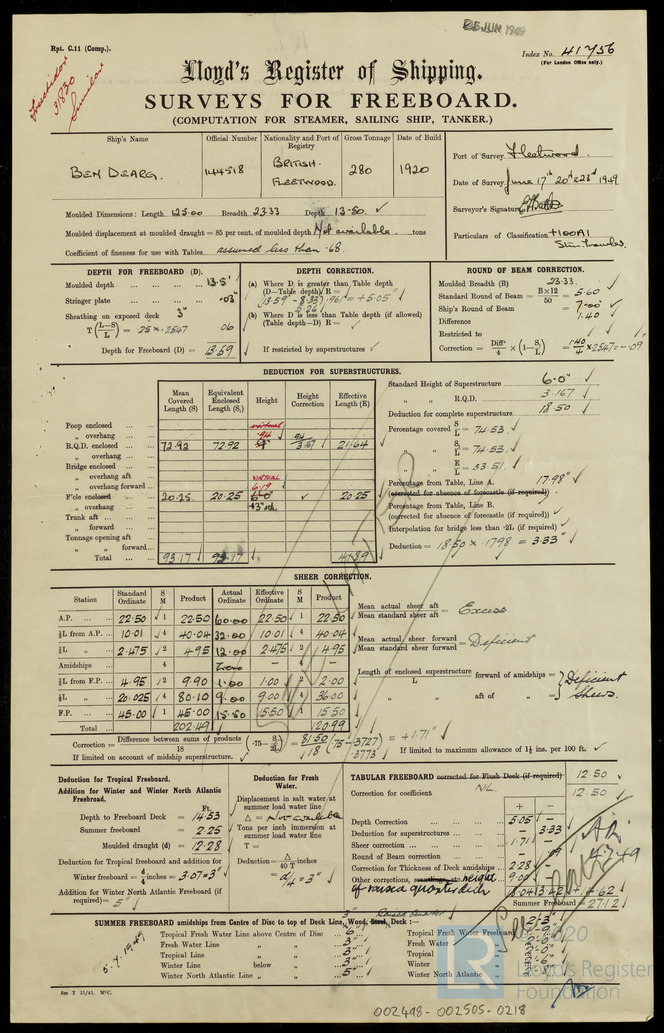 25 JUN 1949
Rpt. C.11 (Comp.).
Index No. 41756
(For London Office only.)
Freeboard
31830
Similar
Lloyd's Register of Shipping.
SURVEYS FOR FREEBOARD.
(COMPUTATION FOR STEAMER, SAILING SHIP, TANKER.)
Ship's Name Official Number Nationality and Port of Registry Gross Tonnage Date of Build
BEN DEARG. 144518 BRITISH. FLEETWOOD. 280 1920
Port of Survey Fleetwood.
Date of Survey June 17th 20th & 23rd 1949.
Surveyor's Signature
Particulars of Classification +100A1
Stm Trawler.
Moulded Dimensions: Length 125.00 Breadth 23.33 Depth 13.50 ✓
Moulded displacement at moulded draught = 85 per cent. of moulded depth Not available tons
Coefficient of fineness for use with Tables assumed less than .68.
DEPTH FOR FREEBOARD (D).
Moulded depth ... ... ... 13.5'
Stringer plate ... ... ... .03"
Sheathing on exposed deck 3"
T (L–S/L) = .25 × .2547 .06
Depth for Freeboard (D) = 13.59
DEPTH CORRECTION.
(a) Where D is greater than Table depth
(D—Table depth) R =
(13.59 - 8.33) .961 = +5.05" ✓
5.26
(b) Where D is less than Table depth (if allowed)
(Table depth—D) R = ✓
If restricted by superstructures ✓
ROUND OF BEAM CORRECTION.
Moulded Breadth (B) 23.33.
Standard Round of Beam = B×12/50 = 5.60 ✓
Ship's Round of Beam = 7.00 ✓
Difference 1.40 ✓
Restricted to
Correction = Diff/4 × (1 – S₁/L) = 1.40/4 × .2547 = -.09
DEDUCTION FOR SUPERSTRUCTURES.
Mean Covered Length (S) Equivalent Enclosed Length (S₁) Height Height Correction Effective Length (E)
Poop enclosed ... ...
„ overhang ... ... virtual
R.Q.D. enclosed ... ... 72.92 72.92 .94 .94/3.167 21.64
„ overhang ...
Bridge enclosed ...
„ overhang aft
„ overhang forward ... VIRTUAL
F'cle enclosed ... 20.25 20.25 6'.0" ✓ 20.25
„ overhang ...
Trunk aft ... ...
„ forward ...
Tonnage opening aft
„ „ forward...
Total ... 93.17 93.17 41.89
Standard Height of Superstructure ... 6'.0" ✓
„ „ R.Q.D. ... 3.167 ✓
Deduction for complete superstructure ... 18.50 ✓
Percentage covered S/L = 74.53 ✓
„ S₁/L = 74.53 ✓
„ E/L = 33.51 ✓
Percentage from Table, Line A. 17.98" ✓
(corrected for absence of forecastle (if required))
Percentage from Table, Line B.
(corrected for absence of forecastle (if required)) ✓
Interpolation for bridge less than ·2L (if required) ✓
Deduction = 18.50 × .1798 = 3.33" ✓
SHEER CORRECTION.
Station Standard Ordinate S M Product Actual Ordinate Effective Ordinate S M Product
A.P. ... ... 22.50 1 22.50 60.00 22.50 1 22.50
⅙L from A.P. ... 10.01 4 40.04 32.00 10.01 4 40.04
⅓L „ 2.475 2 4.95 12.00 2.475 2 4.95
Amidships ... 4 Zero — 4 —
⅓L from F.P. ... 4.95 2 9.90 1.00 1.00 2 2.00
⅙L „ ... 20.025 4 80.10 9.00 9.00 4 36.00
F.P. ... ... 45.00 1 45.00 15.50 15.50 1 15.50
Total ... 202.49 120.99
Mean actual sheer aft
Mean standard sheer aft = Excess
Mean actual sheer forward
Mean standard sheer forward = Deficient
Length of enclosed superstructure / L forward of amidships = Deficient
„ „ aft of „ = Sheers.
Correction = Difference between sums of products / 18 (·75 – S/2L) = 81.50/18 (.75 - .3727) = +1.71" ✓
.3773
If limited on account of midship superstructure. If limited to maximum allowance of 1½ ins. per 100 ft. ✓
Deduction for Tropical Freeboard.
Addition for Winter and Winter North Atlantic Freeboard.
Ft.
Depth to Freeboard Deck = 14.53
Summer freeboard = 2.25
Moulded draught (d) = 12.28
Deduction for Tropical freeboard and addition for
Winter freeboard = d/4 inches = 3.07 = 3" ✓
Addition for Winter North Atlantic Freeboard (if required) = 5" ✓
5.7.1949
Deduction for Fresh Water.
Displacement in salt water at summer load water line
Δ = Not available
Tons per inch immersion at summer load water line
T =
Deduction = Δ/40T inches
= d/4 = 3" ✓
TABULAR FREEBOARD corrected for Flush Deck (if required) 12.50 ✓
Correction for coefficient NIL. 12.50 ✓
+ –
Depth Correction ... ... 5.05 —
Deduction for superstructures ... ... — 3.33
Sheer correction ... ... 1.71 —
Round of Beam correction ... ... — .09
Correction for Thickness of Deck amidships ... 2.28 —
Other corrections, scantlings, etc. height 9.00
of raised quarter deck
3.42 14.62
Summer Freeboard = 27.12
4.7.49
SUMMER FREEBOARD amidships from Centre of Disc to top of Deck Line, Wood, Steel, Deck :—
3" Raised Quarter
Tropical Fresh Water Line above Centre of Disc ... 6" ✓
Fresh Water Line „ „ ... 3" ✓
Tropical Line „ „ ... 3" ✓
Winter Line below „ ... 3" ✓
Winter North Atlantic Line „ „ ... 5" ✓
2'-3"
Tropical Fresh Water Freeboard 1'-9"
Fresh Water „ 2'-0"
Tropical „ 2'-0"
Winter „ 2'-6"
Winter North Atlantic „ 2'-8"
6m T 11/41. M°C.
002498-002505-0218
LR
© 2020
Lloyd's Register
Foundation